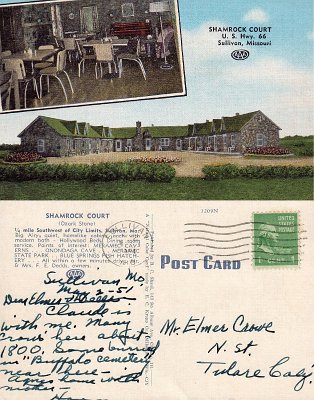 SHAMROCK COURT
U. S. Hwy. 66
Sullivan, Missouri
AAA
SHAMROCK COURT
(Ozark Stone)
½ mile Southwest of City Limits, Sullivan, Mo.
Big Airy, quiet, homelike cabins, each with
modern bath - Hollywood Beds, Dining room
service. Major points of interest: MERAMEC CAV-
ERNS ONONDAGA CAVE MERAMEC
STATE PARK BLUE SPRINGS FISH HATCH-
ERY . . . All within a few minutes drive. Mr.
& Mrs. F. E. Dodds, owners.
POST CARD
AAA
Sullivan Mo
51
Dear Elmer &
Claude is
with me. Many
Crows here about
1800. Some buried
in "Buffalo cemetery"
near there-
home with
mother-
Mr. Elmer Crowe
N. St.
Tulare Calif.